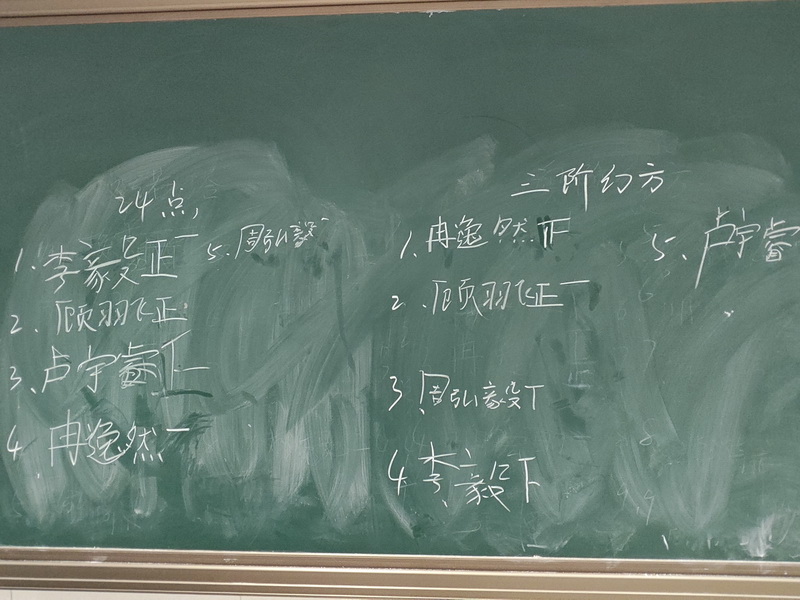 24点,
1、李毅正一
2、顾羽飞正
3、卢宇睿
4 冉逸然一
5、周弘毅一
三阶幻方
1、冉逸然正
2、顾羽飞正一
3 周弘毅丅
4、李毅下
5、卢宇睿